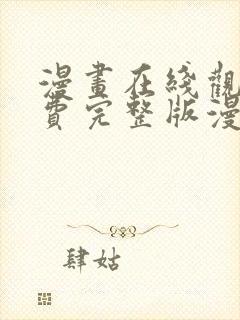 漫畫在綫觀
費完整版漫
肆姑